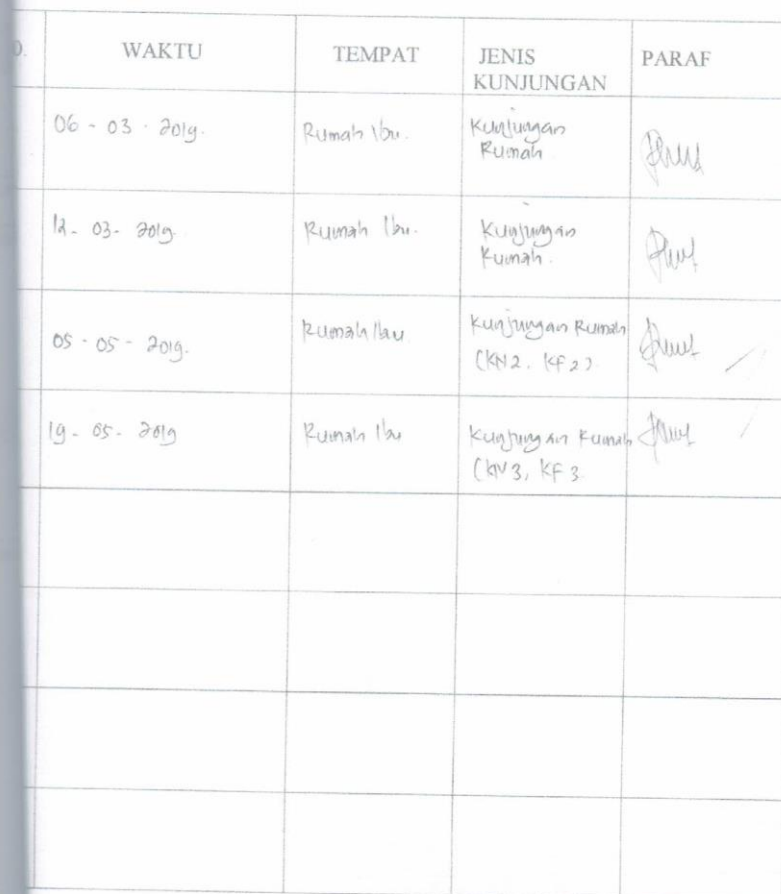 WAKTU TEMPAT JENIS KUNJUNGAN PARAF
06 - 03 - 2019. Rumah Ibu. Kunjungan Rumah
12 - 03 - 2019. Rumah Ibu. Kunjungan Rumah.
05 - 05 - 2019. Rumah Ibu Kunjungan Rumah
(KN2, KF2)
19 - 05 - 2019 Rumah Ibu Kunjungan Rumah
(KN3, KF3